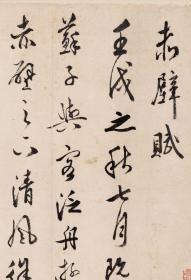 赤壁賦
壬戌之秋七月既
蘇子與客泛舟於
赤壁之下清風徐